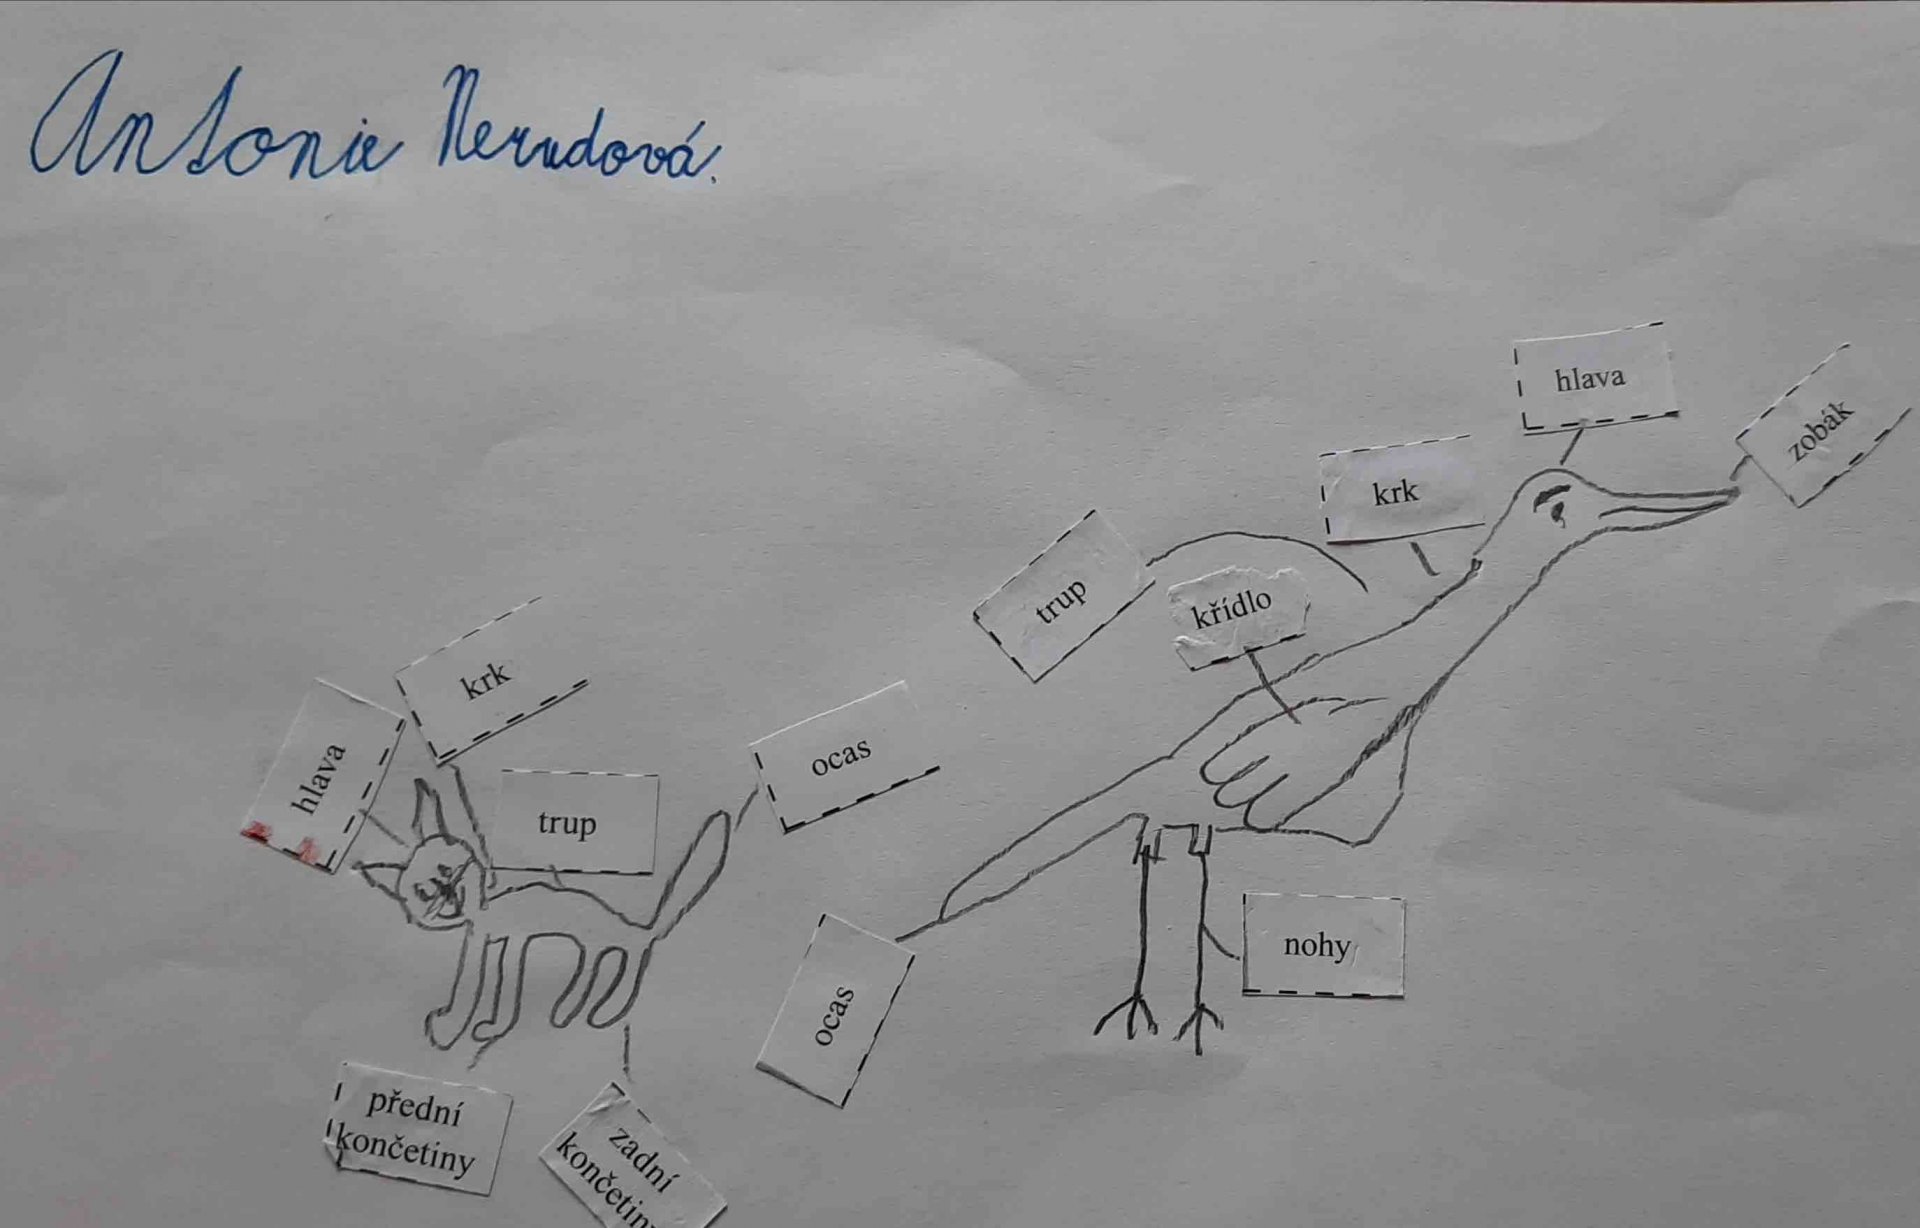 Antonie Nerudová.
hlava
zobák
krk
trup
křídlo
krk
hlava
trup
ocas
nohy
ocas
přední
končetiny
zadní
končetiny